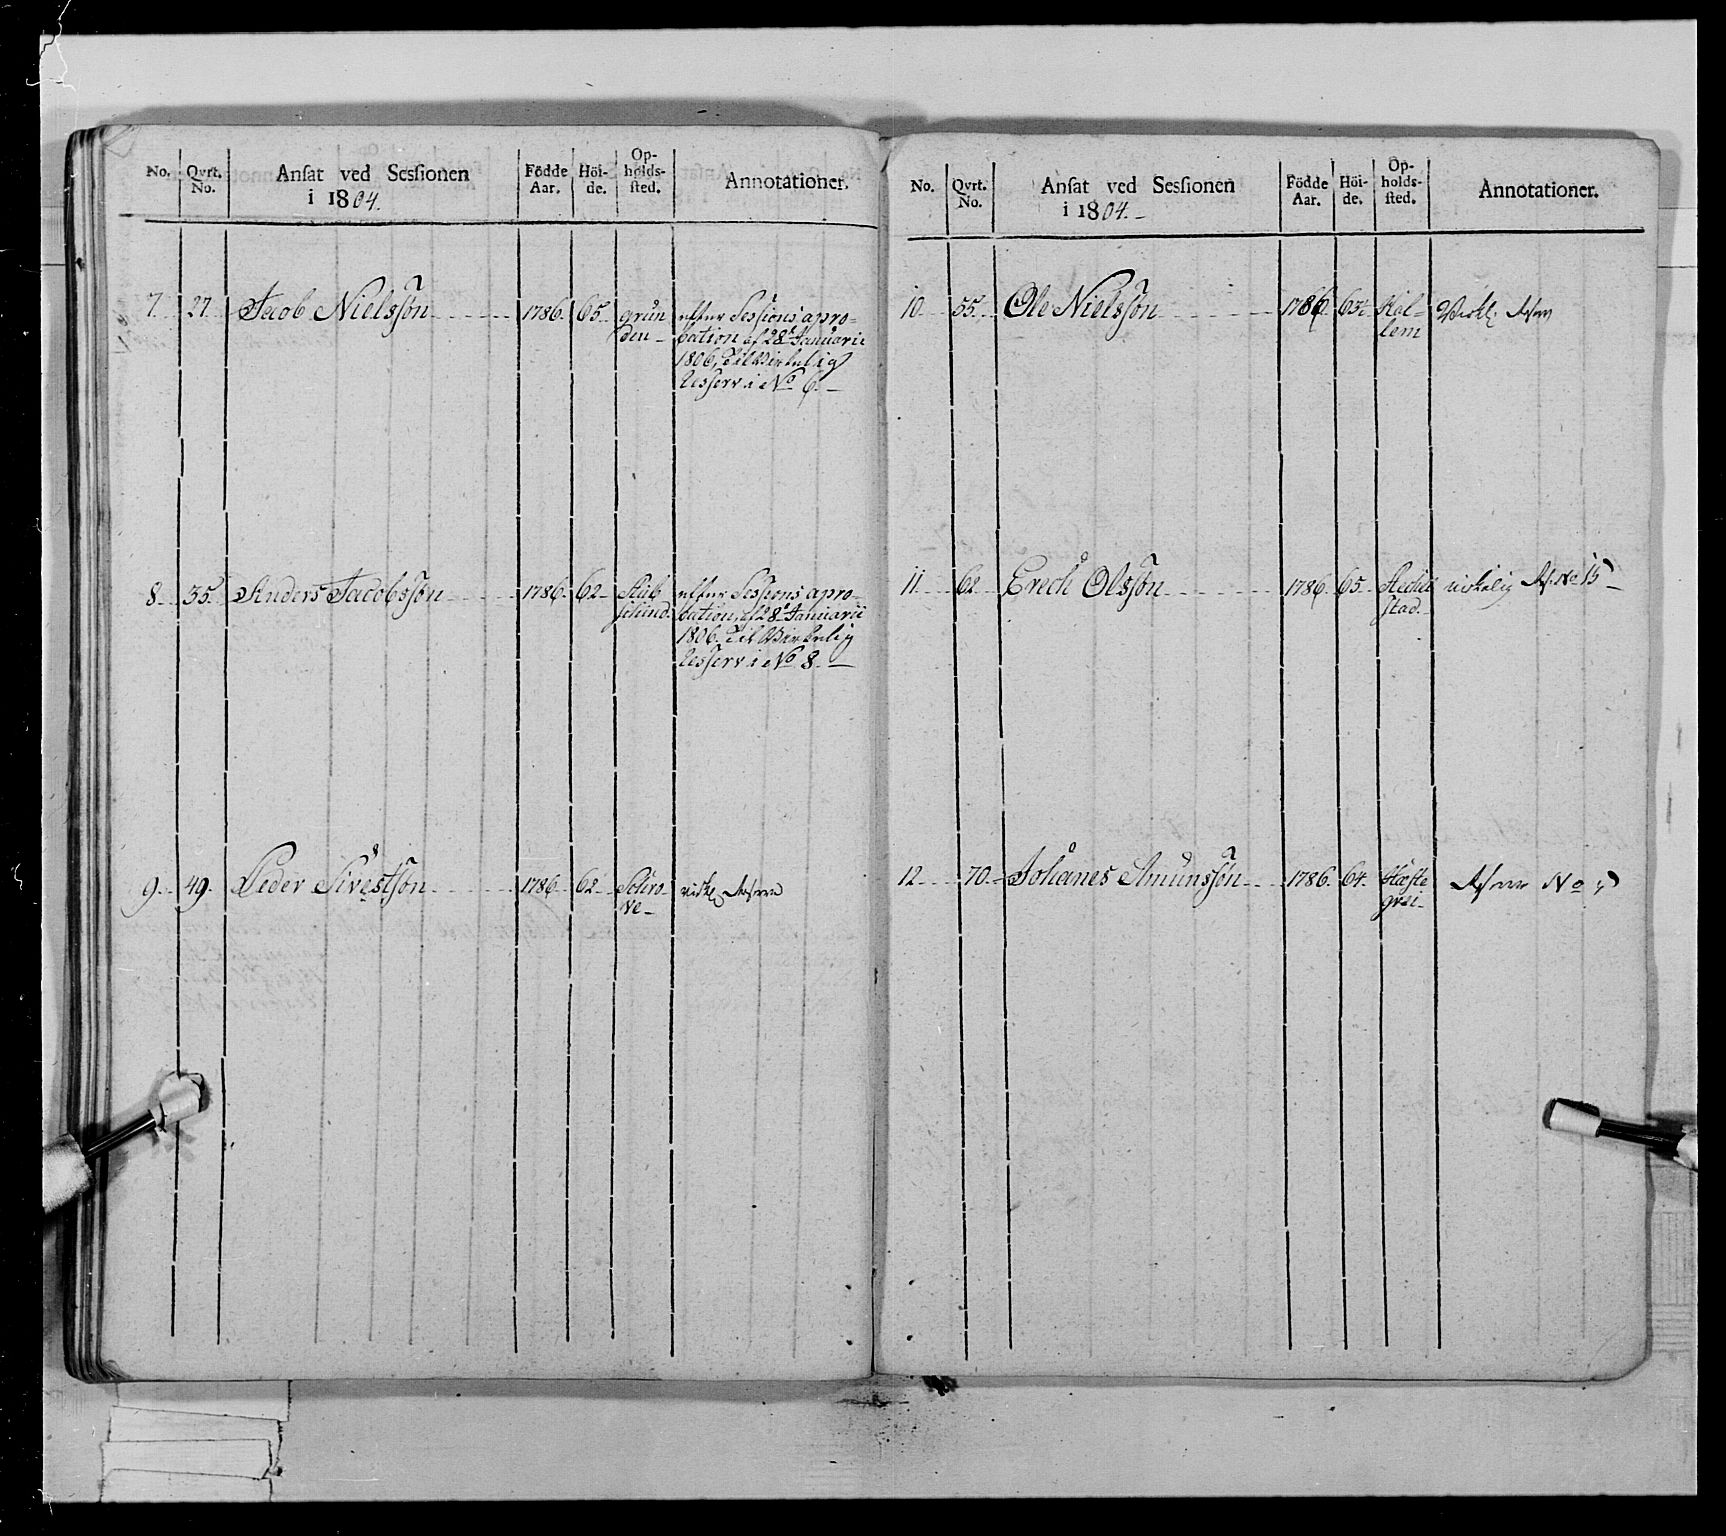 No. Qvrt. No. Ansat ved Sessionen i 1804. Födde Aar. Höi-de. Op-holds-sted. Annotationer.
7. 27. Jacob Nielssøn 1786. 65. grün
den
efter Sessions apro=
bation af 28 Januarii
1806, til Virkelig
Resserv i No 6.
8. 35. Anders Jacobssøn 1786. 62
efter Sessions apro=
bation af 28 Januarii
1806. til Virkelig
Resserv i No 8.
9. 49. Peder Sivertsøn 1786. 62
No. Qvrt. No. Ansat ved Sessionen i 1804. Födde Aar. Höi-de. Op-holds-sted. Annotationer.
10. 55. Ole Nielssøn 1786
lem
11. 62. Erech Olssøn 1786 65.
stad.
virkelig No 15
12. 70. Johanes Amunssøn 1786. 64. Hæste
grei
No